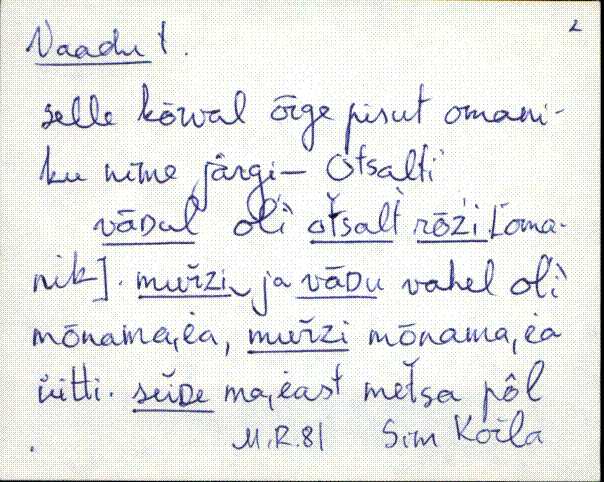 2
Vaadu t.
selle kõrval õige pisut omani-
ku nime järgi — Otsalti
vāDul oli oťsalť rōži [oma-
nik]. muřzi ja vāDu vahel oli
mōnama,ėa, muřzi mōnama,ėa
üitti. seiDe ma,ėast meťsa pôl
M.R.81 Sim Koila